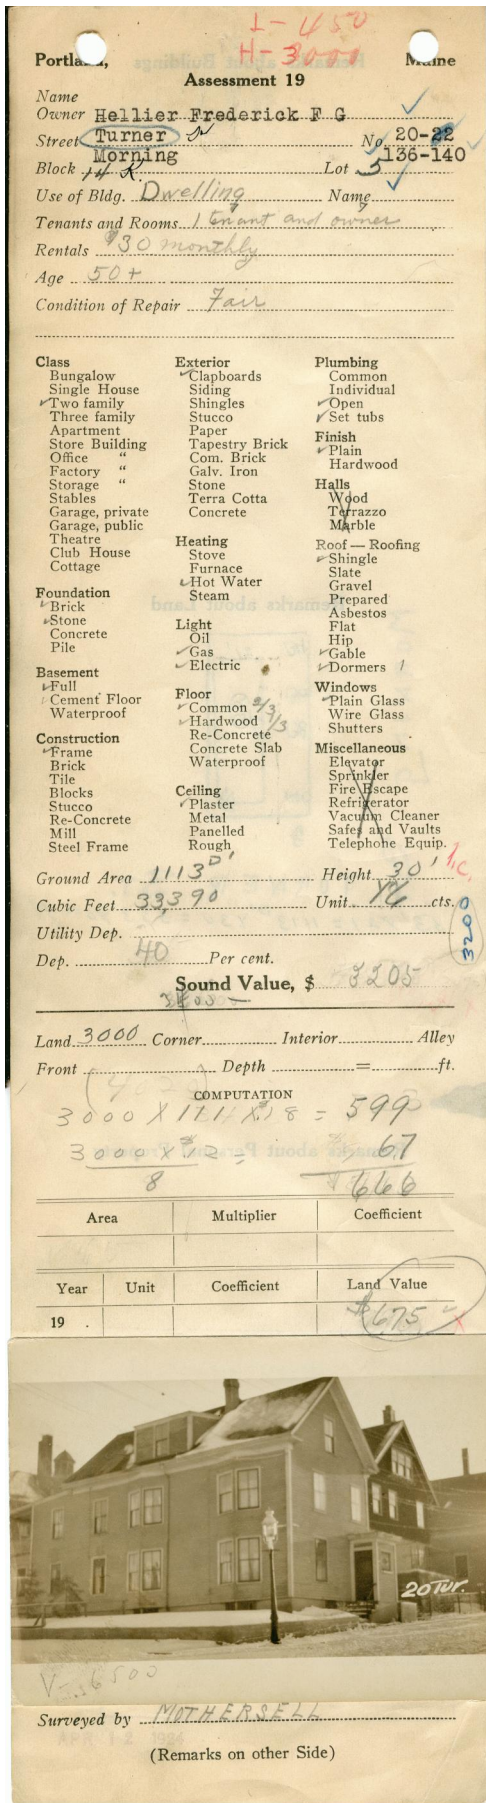 L-450
H-3000
Portland, Maine
Assessment 19
Name
Owner Hellier Frederick F G
Street Turner St No 20-22
Morning 136-140
Block 14 K. Lot 5
Use of Bldg. Dwelling Name
Tenants and Rooms 1 tenant and owner
Rentals $30 monthly
Age 50+
Condition of Repair Fair
Class
Bungalow
Single House
✓Two family
Three family
Apartment
Store Building
Office "
Factory "
Storage "
Stables
Garage, private
Garage, public
Theatre
Club House
Cottage
Foundation
✓Brick
✓Stone
Concrete
Pile
Basement
✓Full
Cement Floor
Waterproof
Construction
✓Frame
Brick
Tile
Blocks
Stucco
Re-Concrete
Mill
Steel Frame
Exterior
✓Clapboards
Siding
Shingles
Stucco
Paper
Tapestry Brick
Com. Brick
Galv. Iron
Stone
Terra Cotta
Concrete
Heating
Stove
Furnace
✓Hot Water
Steam
Light
Oil
✓Gas
✓Electric
Floor
✓Common 2/3
✓Hardwood 1/3
Re-Concrete
Concrete Slab
Waterproof
Ceiling
✓Plaster
Metal
Panelled
Rough
Plumbing
Common
Individual
✓Open
✓Set tubs
Finish
✓Plain
Hardwood
Halls
Wood
Terrazzo
Marble
Roof — Roofing
✓Shingle
Slate
Gravel
Prepared
Asbestos
Flat
Hip
✓Gable
✓Dormers 1
Windows
✓Plain Glass
Wire Glass
Shutters
Miscellaneous
Elevator
Sprinkler
Fire Escape
Refrigerator
Vacuum Cleaner
Safes and Vaults
Telephone Equip.
Ground Area 1113 □' Height 30'
Cubic Feet 33,390 Unit 16 cts.
Utility Dep.
3200
Dep. 40 Per cent.
Sound Value, $ 3205
Land 3000 Corner Interior Alley
Front Depth = ft.
COMPUTATION
3000 X 111 X .18 = 599
3000 X .12 = 67
8 $666
Area Multiplier Coefficient
Year Unit Coefficient Land Value
19 . $675
20 Tur.
V-6500
Surveyed by MOTHERSELL
(Remarks on other Side)